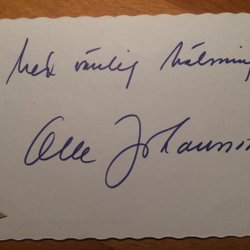 Med vänlig hälsning
Olle Johansson